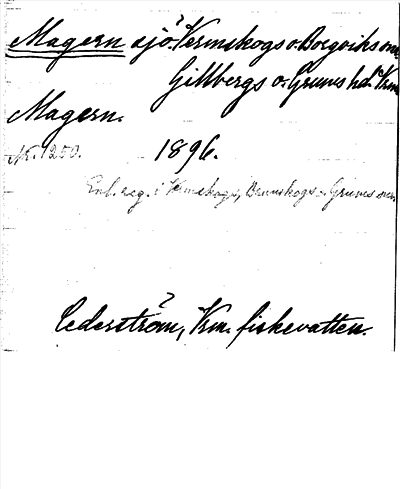 Magern sjö. Vermskogs o. Borgviks snr
Gillbergs o. Grums hd. Vrm
Magern.
Nr. 1250. 1896.
Enl. reg. i Vermskogs, Brunskogs o. Grums snr.
Cederström, Vrm. fiskevatten.